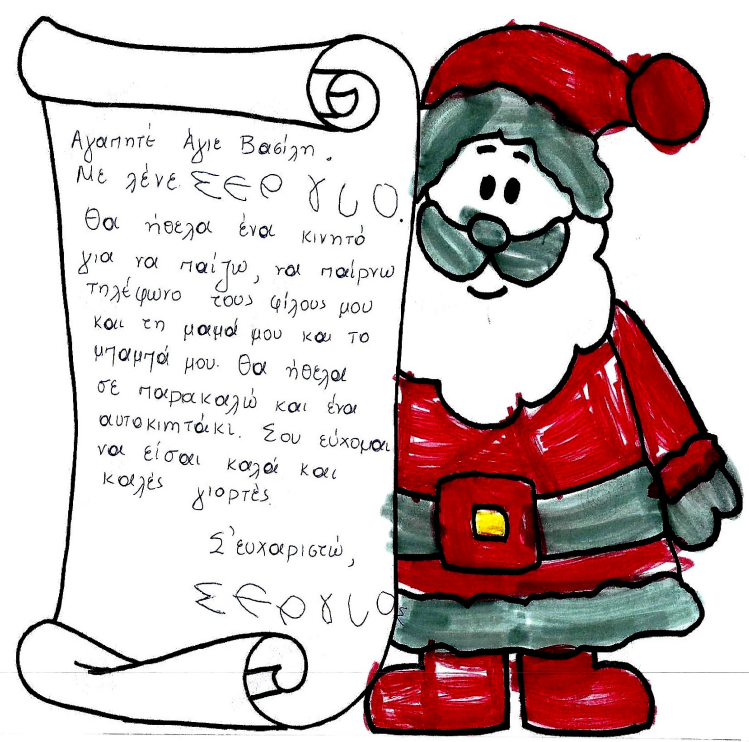 Αγαπητέ Άγιε Βασίλη.
Με λένε ΣΕΡγιΟ.
Θα ήθελα ένα κινητό
για να παίζω, να παίρνω
τηλέφωνο τους φίλους μου
και τη μαμά μου και το
μπαμπά μου. Θα ήθελα
σε παρακαλώ και ένα
αυτοκινητάκι. Σου εύχομαι
να είσαι καλά και
καλές γιορτές.
Σ'ευχαριστώ,
ΣΕργιος